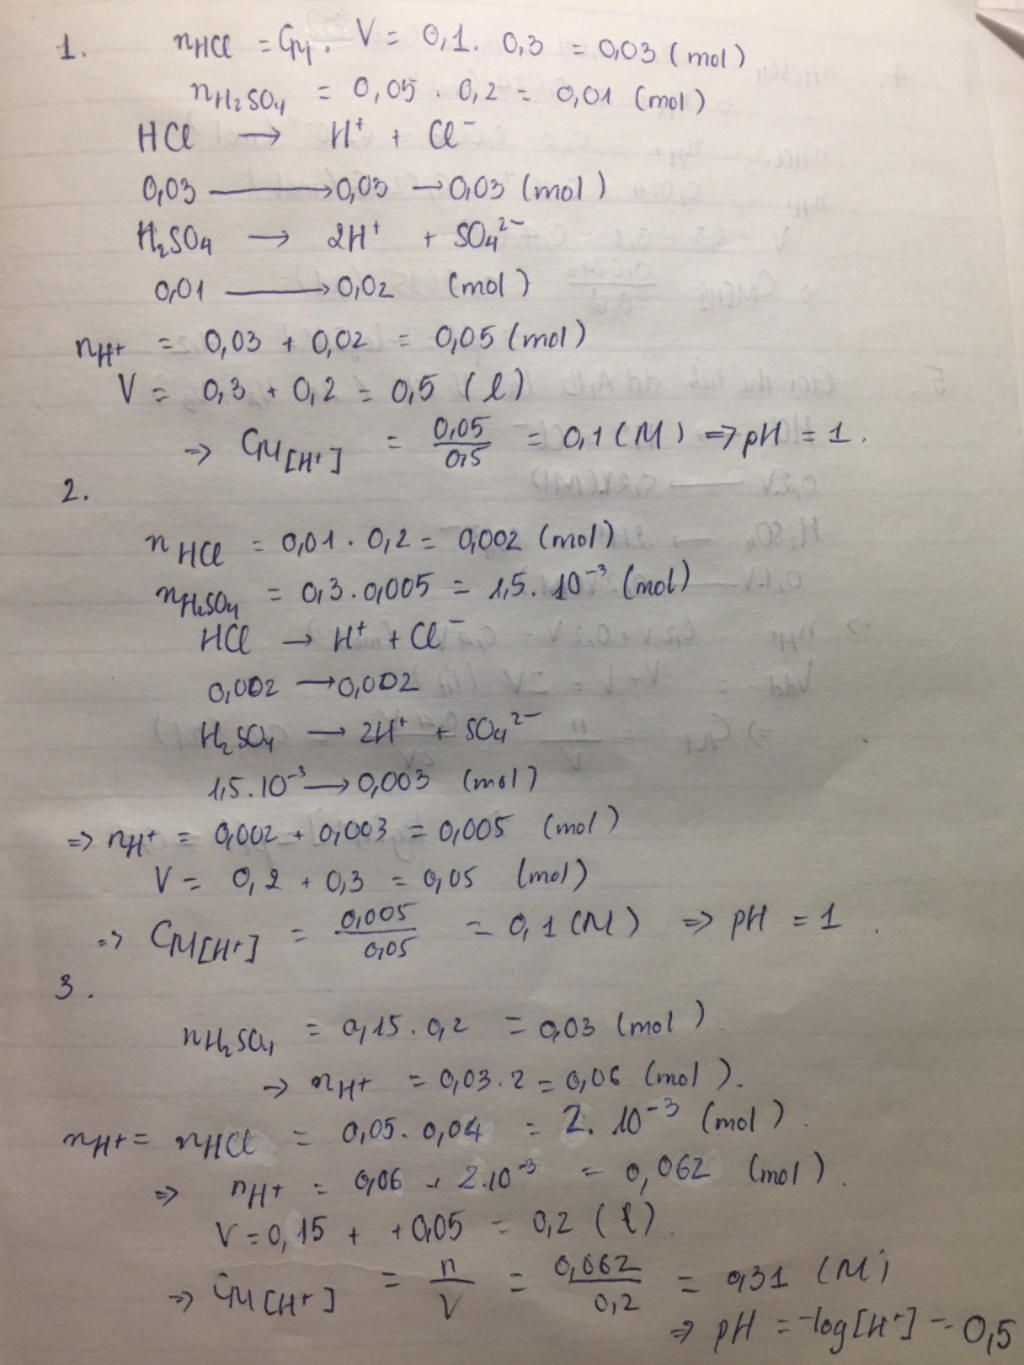 1. nHCl = CM . V = 0,1 . 0,3 = 0,03 (mol)
nH₂SO₄ = 0,05 . 0,2 = 0,01 (mol)
HCl → H⁺ + Cl⁻
0,03 → 0,03 → 0,03 (mol)
H₂SO₄ → 2H⁺ + SO₄²⁻
0,01 → 0,02 (mol)
nH⁺ = 0,03 + 0,02 = 0,05 (mol)
V = 0,3 + 0,2 = 0,5 (l)
⇒ CM[H⁺] = 0,05/0,5 = 0,1 (M) ⇒ pH = 1.
2.
nHCl = 0,01 . 0,2 = 0,002 (mol)
nH₂SO₄ = 0,3 . 0,005 = 1,5 . 10⁻³ (mol)
HCl → H⁺ + Cl⁻
0,002 → 0,002
H₂SO₄ → 2H⁺ + SO₄²⁻
1,5 . 10⁻³ → 0,003 (mol)
⇒ nH⁺ = 0,002 + 0,003 = 0,005 (mol)
V = 0,2 + 0,3 = 0,05 (mol)
⇒ CM[H⁺] = 0,005/0,05 = 0,1 (M) ⇒ pH = 1.
3.
nH₂SO₄ = 0,15 . 0,2 = 0,03 (mol)
⇒ nH⁺ = 0,03 . 2 = 0,06 (mol).
nH⁺ = nHCl = 0,05 . 0,04 = 2 . 10⁻³ (mol).
⇒ nH⁺ = 0,06 + 2.10⁻³ = 0,062 (mol).
V = 0,15 + + 0,05 = 0,2 (l).
⇒ CM[H⁺] = n/V = 0,062/0,2 = 0,31 (M)
⇒ pH = -log[H⁺] = 0,5